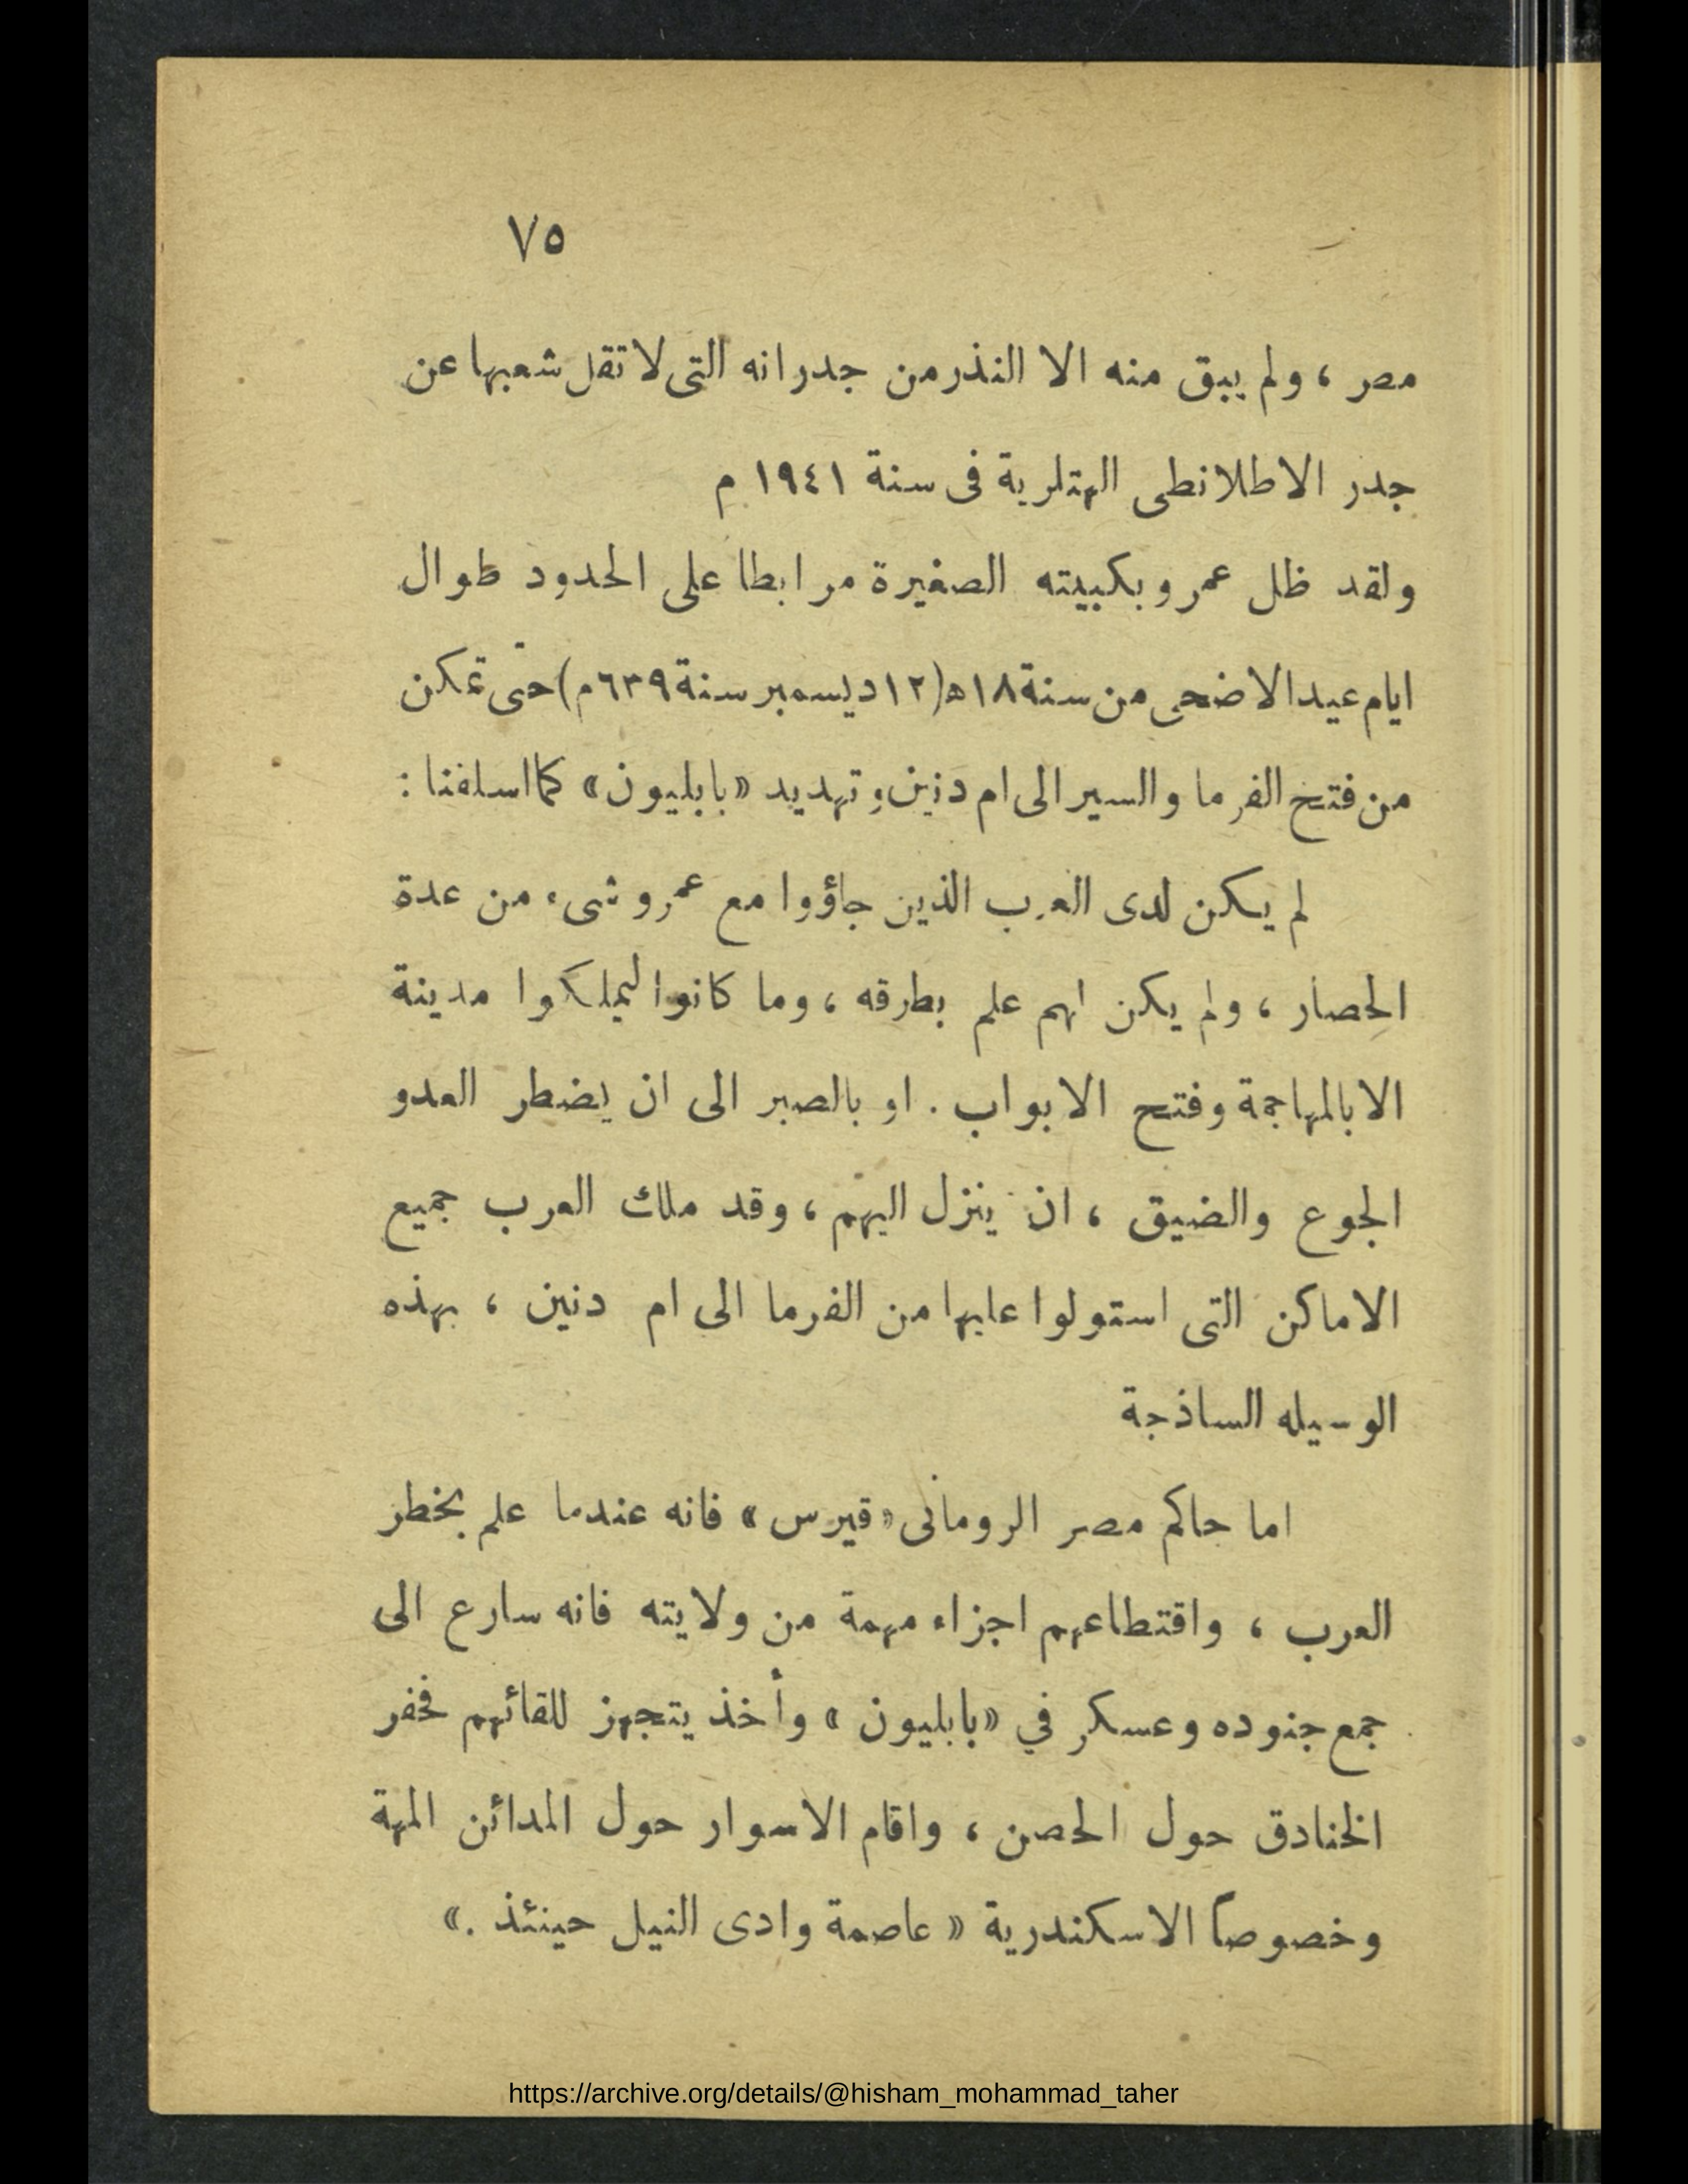 ٧٥
مصر ، ولم يبق منه الا النذر من جدرانه التى لا تقل شعبها عن
جدر الاطلانطى الهتلرية فى سنة ١٩٤١ م
ولقد ظل عمرو بكبيبته الصغيرة مرابطا على الحدود طوال
ايام عيد الاضحى من سنة ١٨ھ (١٢ ديسمبر سنة ٦٣٩ م) حتى تمكن
من فتح الفرما والسير الى ام دنين وتهديد «بابليون» كما اسلفنا :
لم يكن لدى العرب الذين جاؤوا مع عمرو شىء من عدة
الحصار ، ولم يكن لهم علم بطرقه ، وما كانوا ليملكوا مدينة
الا بالمهاجمة وفتح الابواب . او بالصبر الى ان يضطر العدو
الجوع والضيق ، ان ينزل اليهم ، وقد ملك العرب جميع
الاماكن التى استولوا عليها من الفرما الى ام دنين ، بهذه
الوسيله الساذجة
اما حاكم مصر الرومانى «قيرس» فانه عندما علم بخطر
العرب ، واقتطاعهم اجزاء مهمة من ولايته فانه سارع الى
جمع جنوده وعسكر في «بابليون» وأخذ يتجهز للقائهم فحفر
الخنادق حول الحصن ، واقام الاسوار حول المدائن المهة
وخصوصاً الاسكندرية « عاصمة وادى النيل حينئذ .»
https://archive.org/details/@hisham_mohammad_taher